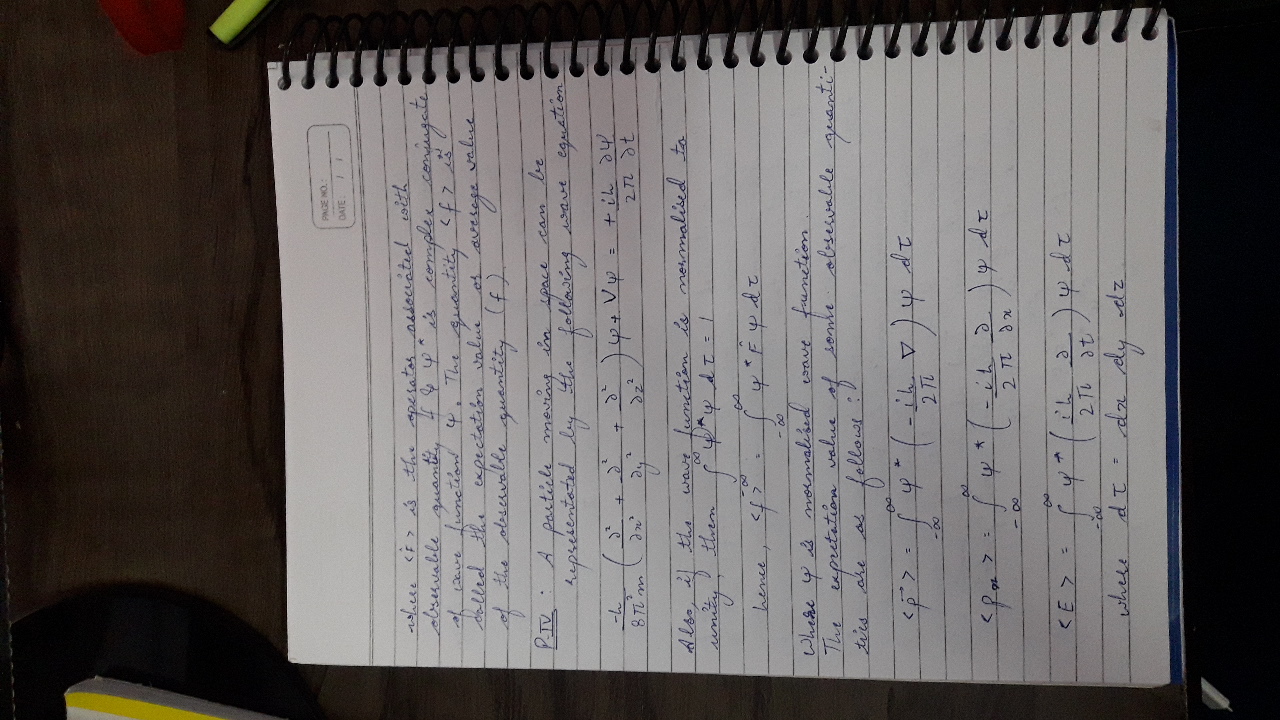 PAGE NO.:
DATE: / /
where <f̂> is the operator associated with
observable quantity f & ψ* is complex conjugate
of wave function ψ. The quantity <f> is
called the expectation value or average value
of the observable quantity (f)
P-IV : A particle moving in space can be
representated by the following wave equation
-h/8π²m (∂²/∂x² + ∂²/∂y² + ∂²/∂z²) ψ + Vψ = + ih/2π ∂ψ/∂t
Also, if the wave function is normalised to
unity, then ∫_{-∞}^{∞} ψ*ψ dτ = 1
hence, <f> = ∫_{-∞}^{∞} ψ* F̂ ψ dτ
Where ψ is normalised wave function.
The expectation value of some observable quanti-
ties are as follows :
<p⃗> = ∫_{-∞}^{∞} ψ* (-ih/2π ∇) ψ dτ
<pₓ> = ∫_{-∞}^{∞} ψ* (-ih/2π ∂/∂x) ψ dτ
<E> = ∫_{-∞}^{∞} ψ* (ih/2π ∂/∂t) ψ dτ
where dτ = dx dy dz